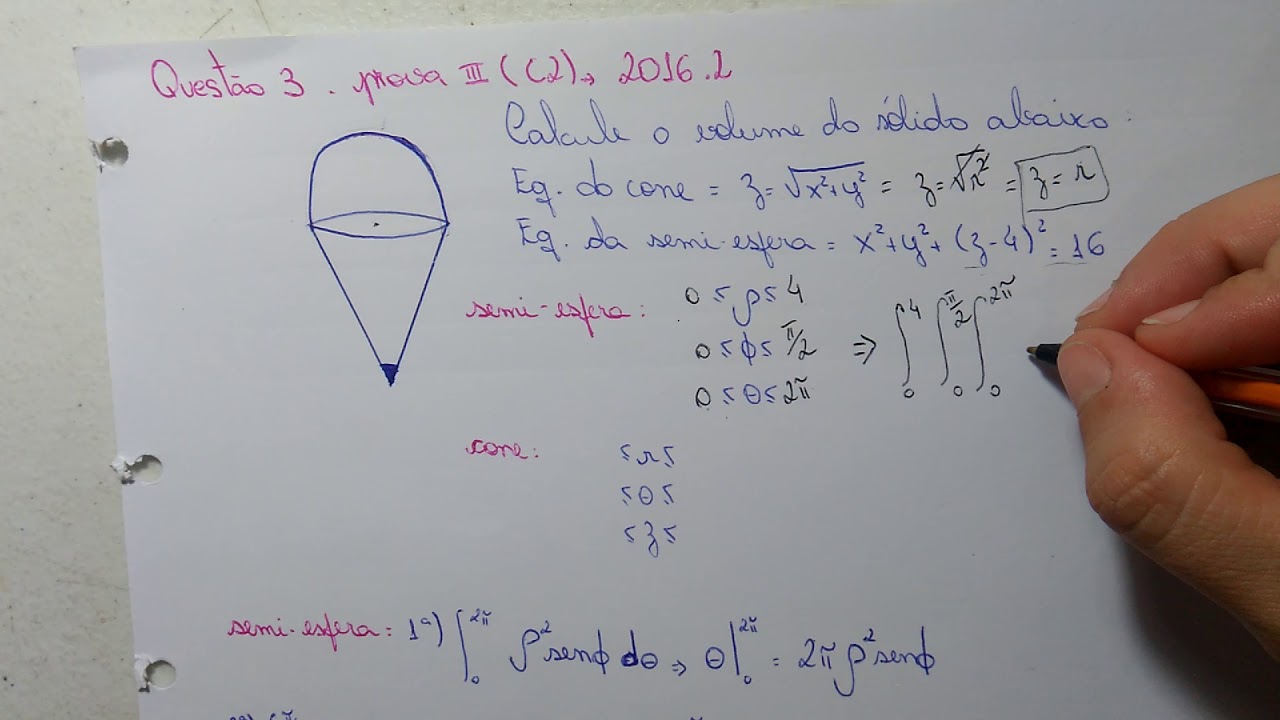 Questão 3. prova III (C2), 2016.2
Calcule o volume do sólido abaixo:
Eq. do cone = z=√x²+y² = z=√r² = z=r
Eq. da semi-esfera = x²+y²+(z-4)²=16
semi-esfera: 0≤ρ≤4
0≤ϕ≤π/2 ⇒ ∫₀⁴ ∫₀^π/2 ∫₀^2π
0≤θ≤2π
cone: ≤r≤
≤θ≤
≤z≤
semi-esfera: 1ª) ∫₀^2π ρ²senϕ dθ ⇒ θ|₀^2π = 2πρ²senϕ